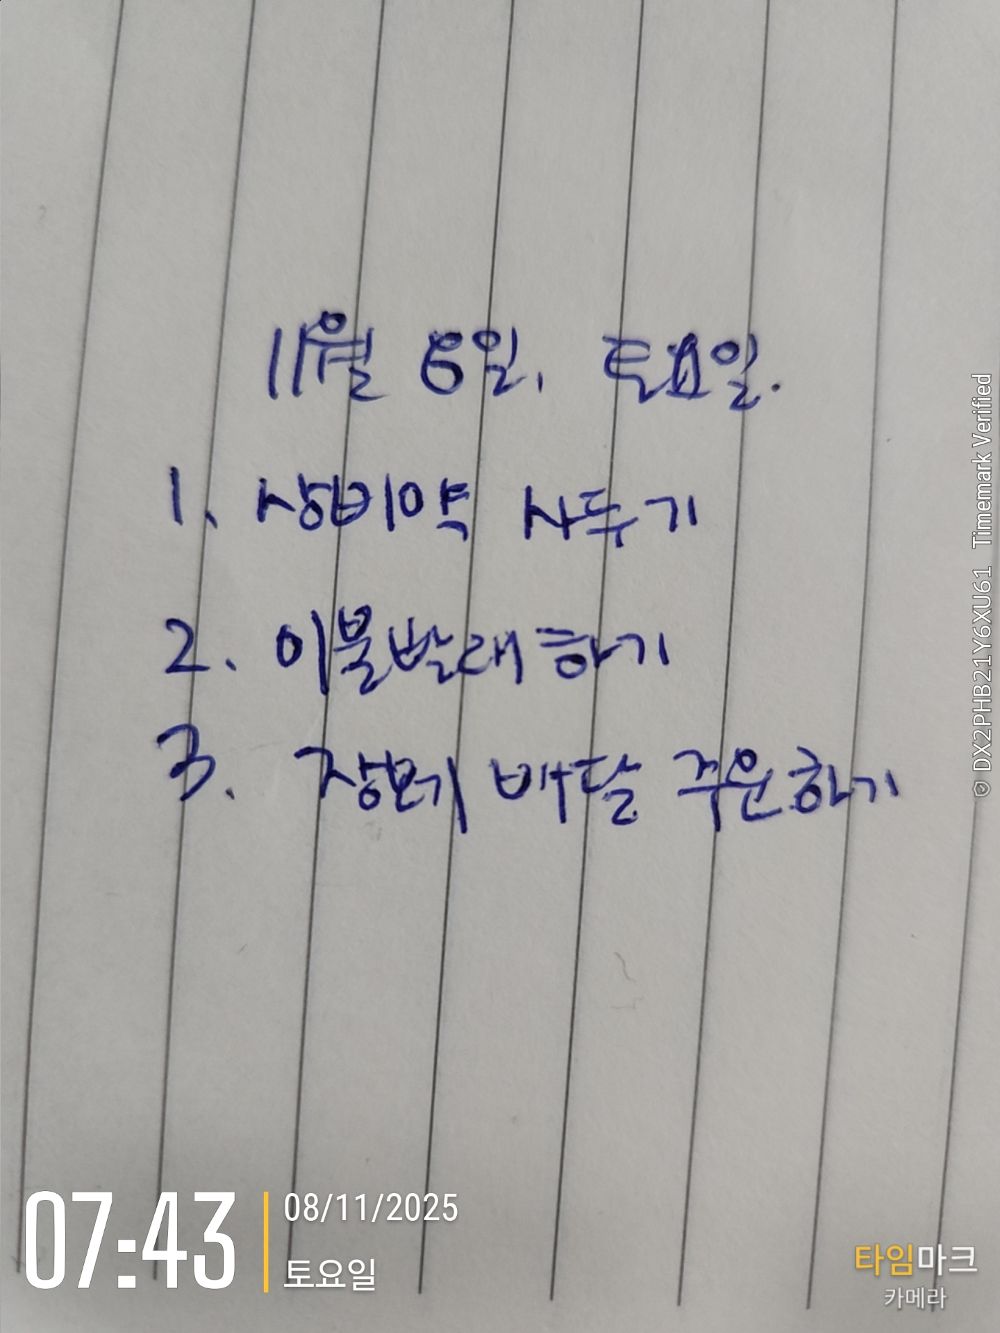 11월 8일, 토요일.
1. 상비약 사두기
2. 이불빨래하기
3. 장보기 배달 주문하기
07:43
08/11/2025
토요일
타임마크
카메라
DX2PHB21Y6XU61 Timemark Verified